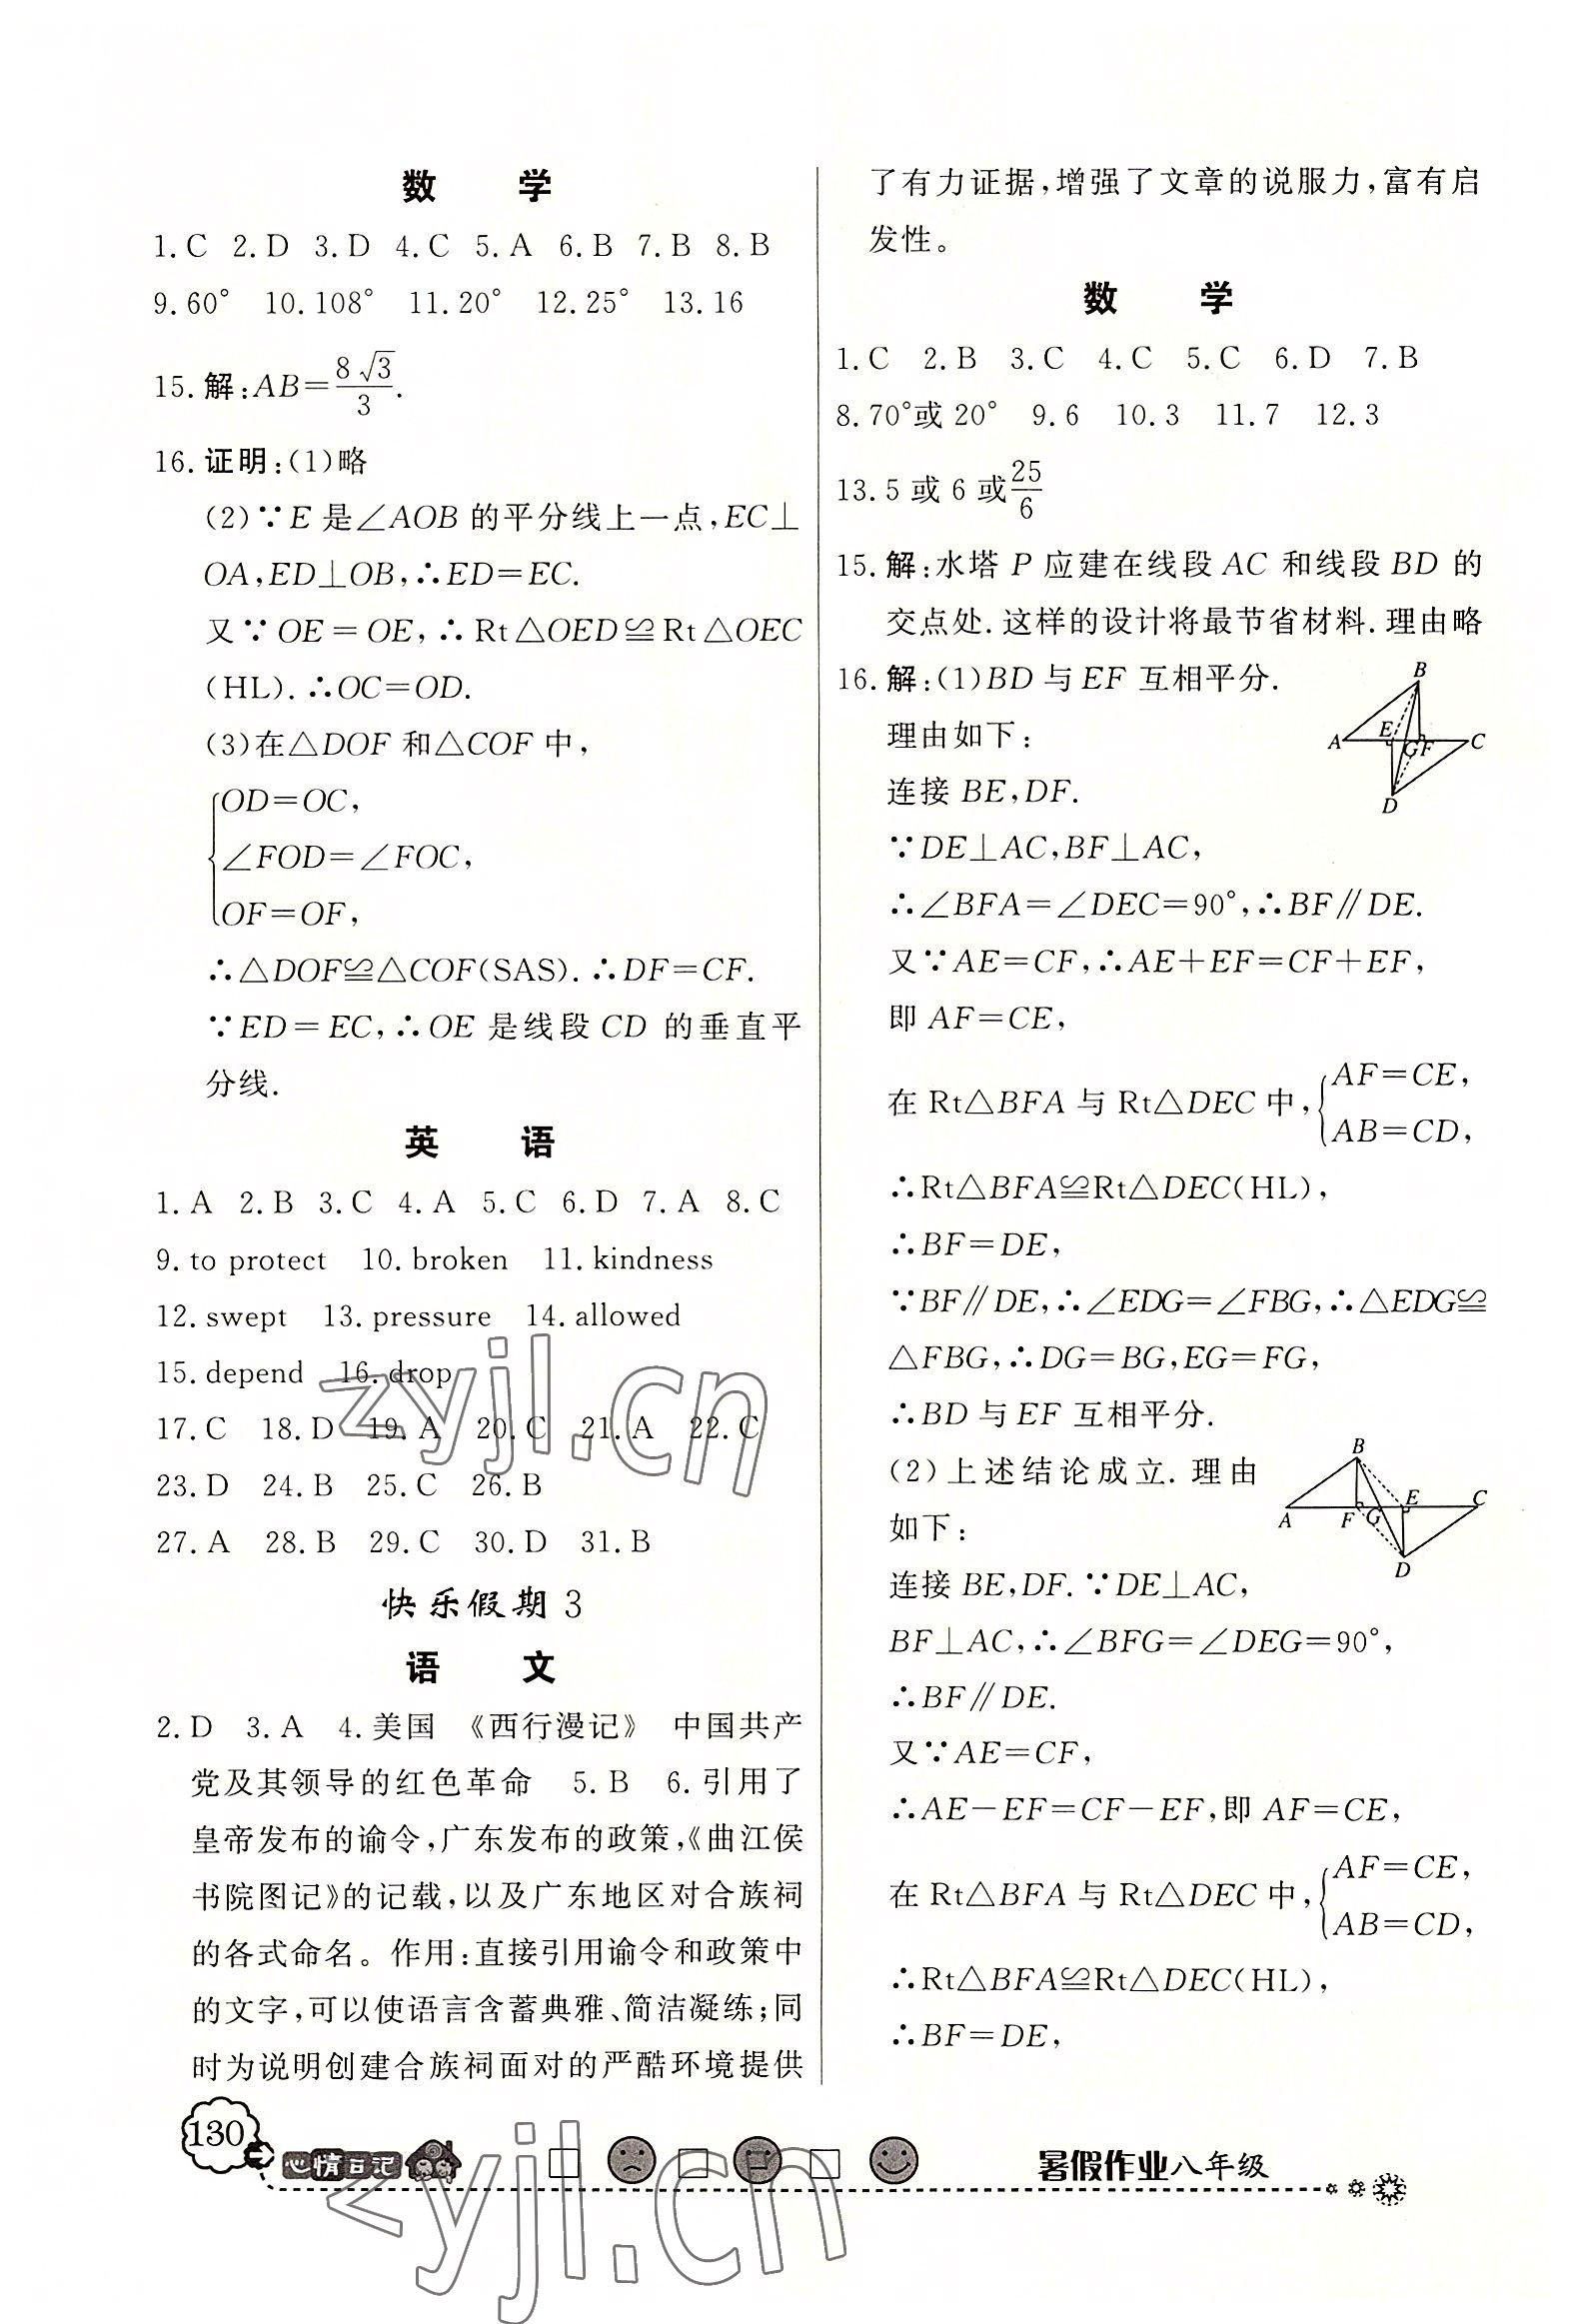 数 学
1.C 2.D 3.D 4.C 5.A 6.B 7.B 8.B
9.60° 10.108° 11.20° 12.25° 13.16
15.解:AB=8√3/3.
16.证明:(1)略
(2)∵E 是∠AOB 的平分线上一点,EC⊥
OA,ED⊥OB,∴ED=EC.
又∵OE=OE,∴Rt△OED≌Rt△OEC
(HL).∴OC=OD.
(3)在△DOF 和△COF 中,
OD=OC,
∠FOD=∠FOC,
OF=OF,
∴△DOF≌△COF(SAS).∴DF=CF.
∵ED=EC,∴OE 是线段 CD 的垂直平
分线.
英 语
1.A 2.B 3.C 4.A 5.C 6.D 7.A 8.C
9.to protect 10.broken 11.kindness
12.swept 13.pressure 14.allowed
15.depend 16.drop
17.C 18.D 19.A 20.C 21.A 22.C
23.D 24.B 25.C 26.B
27.A 28.B 29.C 30.D 31.B
快乐假期 3
语 文
2.D 3.A 4.美国 《西行漫记》 中国共产
党及其领导的红色革命 5.B 6.引用了
皇帝发布的谕令,广东发布的政策,《曲江侯
书院图记》的记载,以及广东地区对合族祠
的各式命名。作用:直接引用谕令和政策中
的文字,可以使语言含蓄典雅、简洁凝练;同
时为说明创建合族祠面对的严酷环境提供
了有力证据,增强了文章的说服力,富有启
发性。
数 学
1.C 2.B 3.C 4.C 5.C 6.D 7.B
8.70°或 20° 9.6 10.3 11.7 12.3
13.5 或 6 或 25/6
15.解:水塔 P 应建在线段 AC 和线段 BD 的
交点处.这样的设计将最节省材料.理由略
16.解:(1)BD 与 EF 互相平分.
理由如下:
连接 BE,DF.
B
A E G F C
D
∵DE⊥AC,BF⊥AC,
∴∠BFA=∠DEC=90°,∴BF∥DE.
又∵AE=CF,∴AE+EF=CF+EF,
即 AF=CE,
在 Rt△BFA 与 Rt△DEC 中,
AF=CE,
AB=CD,
∴Rt△BFA≌Rt△DEC(HL),
∴BF=DE,
∵BF∥DE,∴∠EDG=∠FBG,∴△EDG≌
△FBG,∴DG=BG,EG=FG,
∴BD 与 EF 互相平分.
(2)上述结论成立.理由
如下:
B
A F G E C
D
连接 BE,DF.∵DE⊥AC,
BF⊥AC,∴∠BFG=∠DEG=90°,
∴BF∥DE.
又∵AE=CF,
∴AE-EF=CF-EF,即 AF=CE,
在 Rt△BFA 与 Rt△DEC 中,
AF=CE,
AB=CD,
∴Rt△BFA≌Rt△DEC(HL),
∴BF=DE,
130
心情日记
暑假作业八年级
zyjl.cn
zyjl.cn